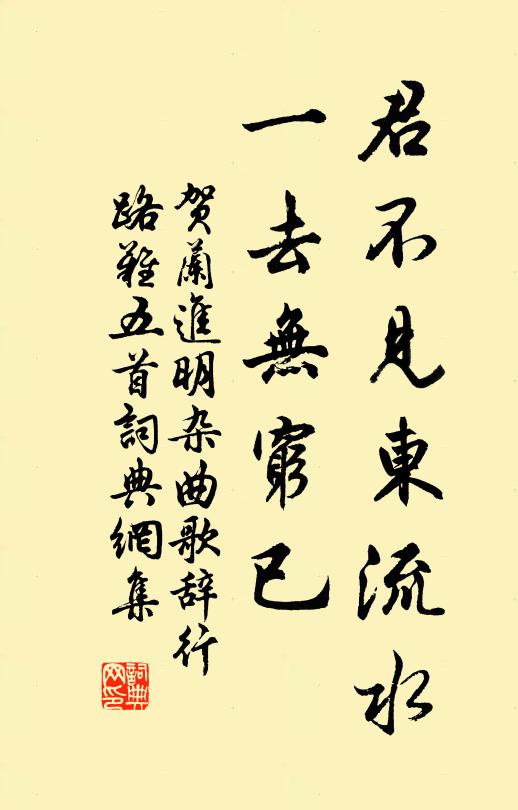 君不見東流水
一去無窮已
贺蘭進明杂曲歌辞行
路難五首詞典網集
詞典
网印